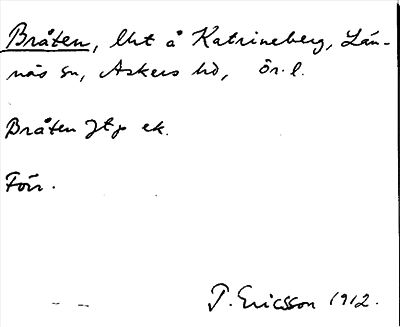 Bråten, lht å Katrineberg, Län-
näs sn, Askers hd, Ör. l.
Bråten Jtp ek.
Förr.
T. Ericsson 1912.